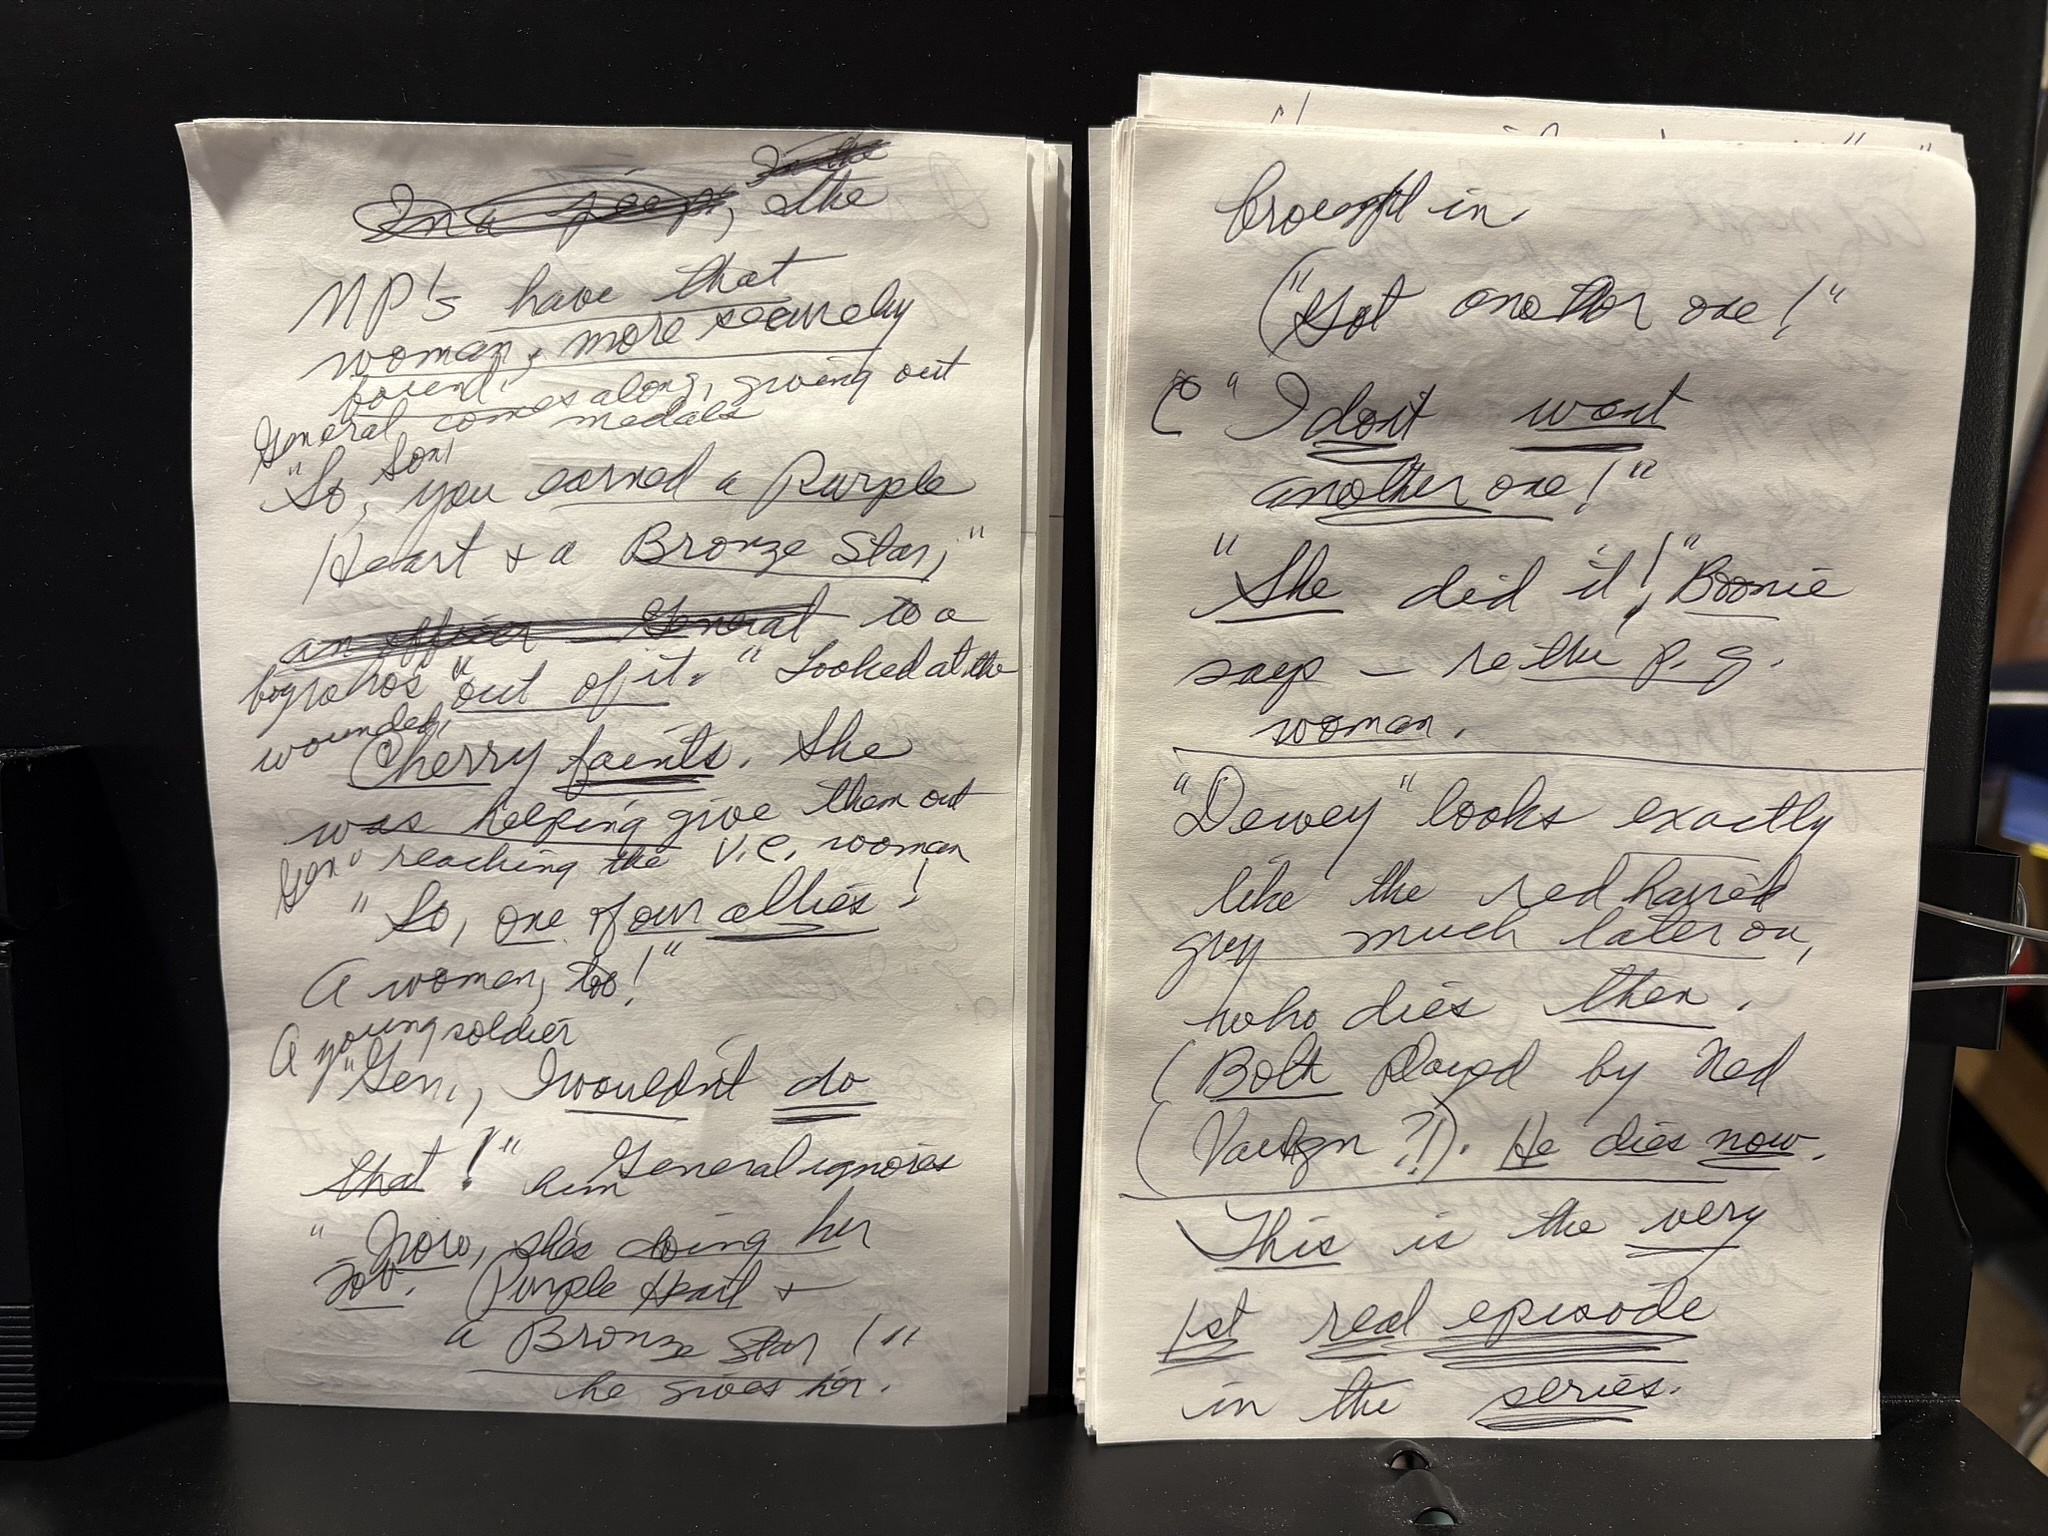 In a jeep, In the
the
MP's have that
woman, more securely
bound.
General comes along, giving out
medals
"So, Son!
you earned a Purple
Heart + a Bronze Star,"
an officer - General to a
boy who's "out of it." Looked at the
wounded,
Cherry faints. She
was helping give them out
Gen" reaching the V.C. woman
"So, one of our allies!
A woman, too!"
A young soldier
"Gen., I wouldn't do
that!" General ignores
him
"Now, she's doing her
job. Purple Heart +
a Bronze Star!""
he gives her.
brought in.
("Got another one!"
"I don't want
another one!"
"She did it!", Boonie
says — re the p.g.
woman.
"Dewey" looks exactly
like the red haired
guy much later on,
who dies then.
(Both played by Ned
(Vaughn?!). He dies now.
This is the very
1st real episode
in the series.